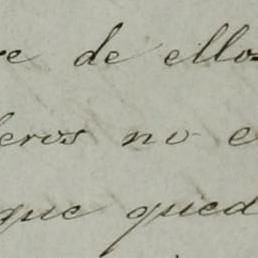 re de ellos
leros no e
que qued